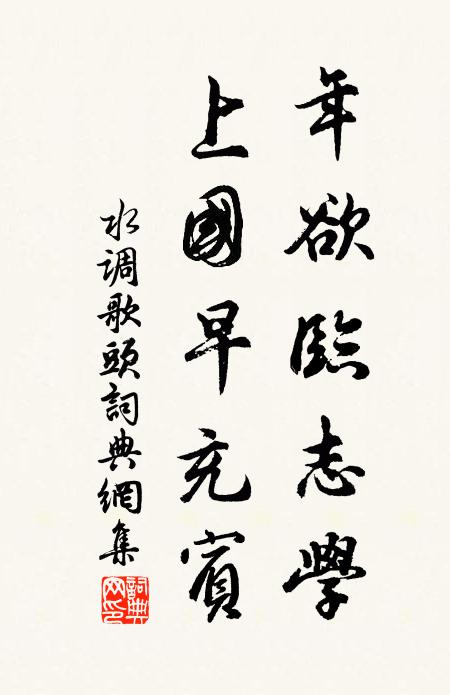 年欲臨志學
上國早充賓
水調歌頭詞典網集
詞典
网印